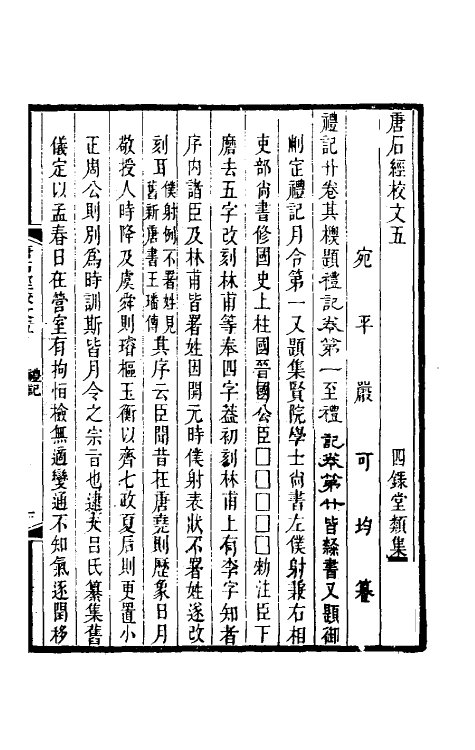 唐石經校文五　四錄堂類集
宛平嚴可均纂
禮記廿卷其標題禮記卷第一至禮記卷第廿皆隸書又題御
刪定禮記月令第一又題集賢院學士尚書左僕射兼右相
吏部尚書修國史上柱國晉國公臣□□□□□勑注臣下
磨去五字改刻林甫等奉四字葢初刻林甫上有李字知者
序内諸臣及林甫皆署姓因開元時僕射表狀不署姓遂改
刻耳僕射例不署姓見舊新唐書王璠傳其序云臣聞昔在唐堯則歷象日月
敬授人時降及虞舜則璿樞玉衡以齊七政夏后則更置小
正周公則別為時訓斯皆月令之宗旨也逮夫呂氏纂集舊
儀定以孟春日在營室有拘恒檢無適變通不知氣逐閏移
禮記